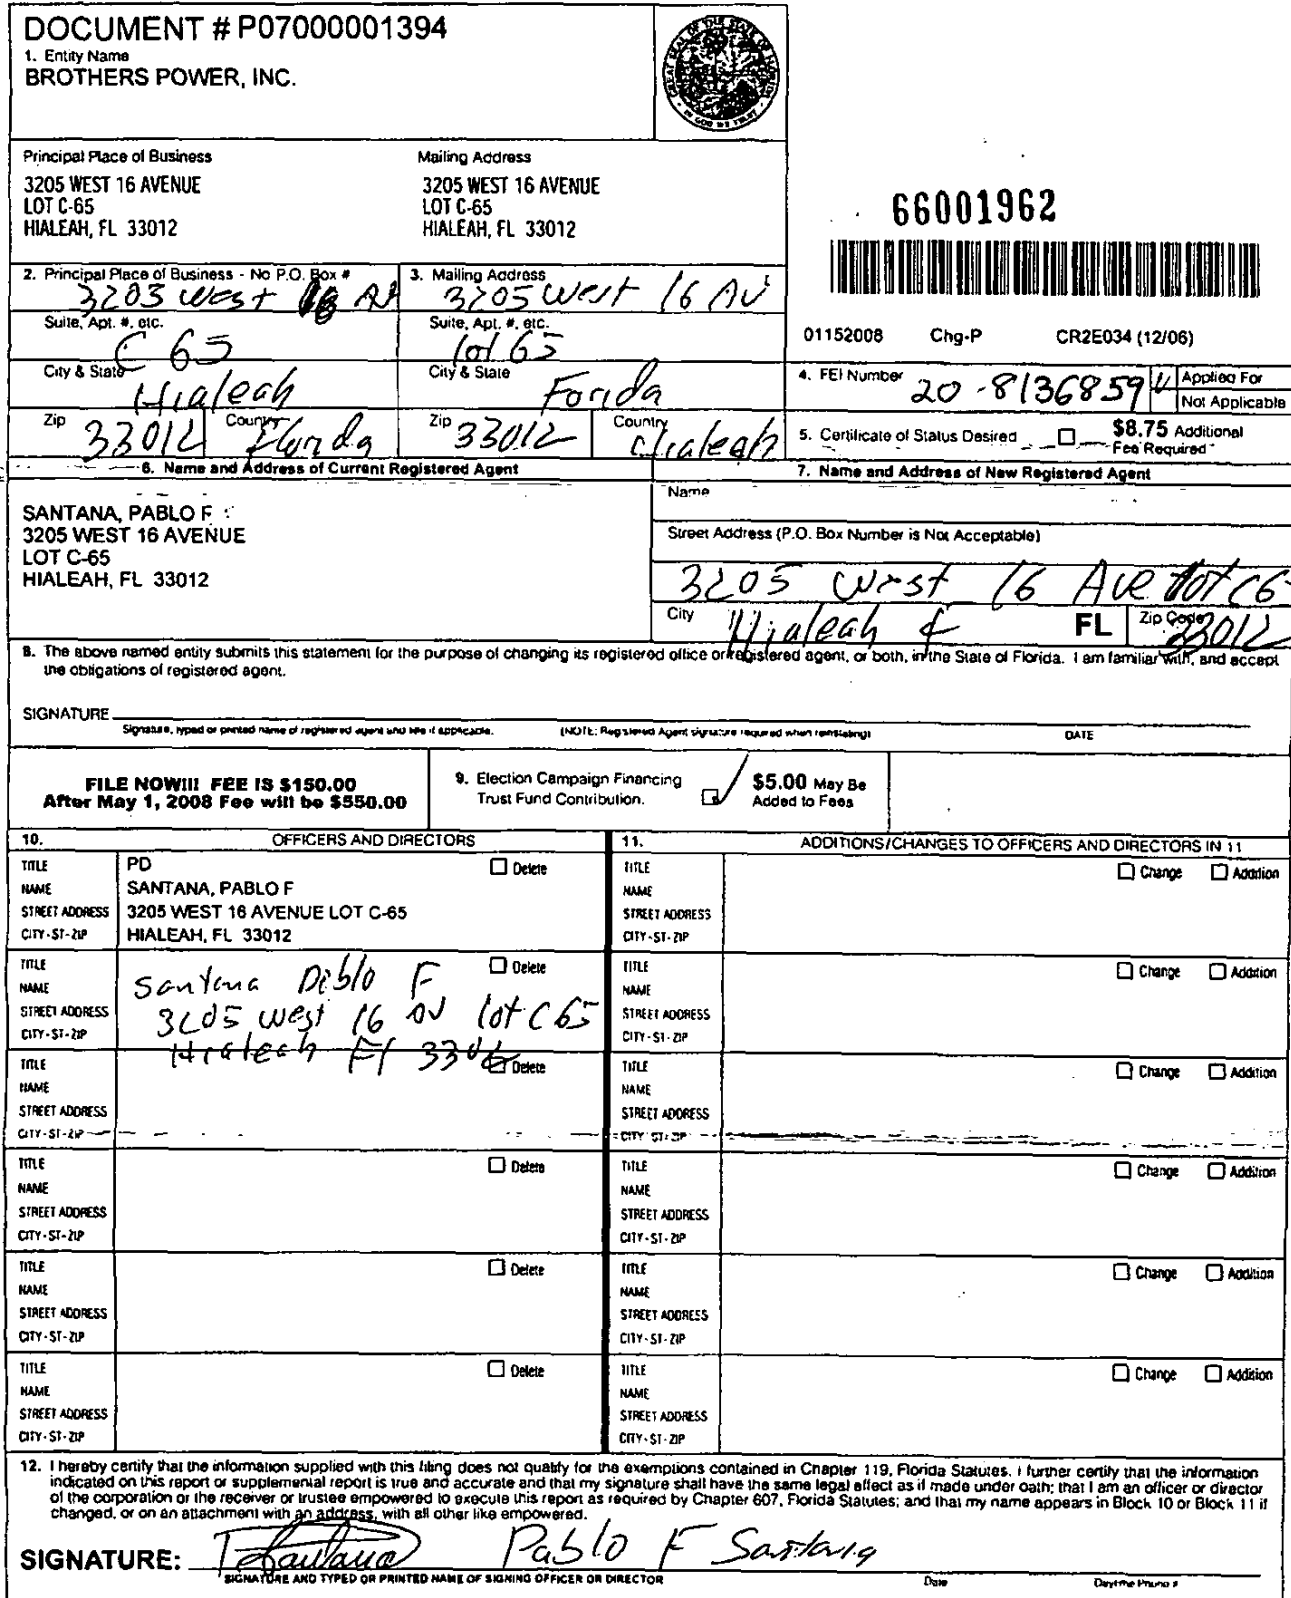 DOCUMENT # P07000001394
1. Entity Name
BROTHERS POWER, INC.
GREAT SEAL OF THE STATE OF FLORIDA
IN GOD WE TRUST
Principal Place of Business
3205 WEST 16 AVENUE
LOT C-65
HIALEAH, FL 33012
Mailing Address
3205 WEST 16 AVENUE
LOT C-65
HIALEAH, FL 33012
66001962
01152008 Chg-P CR2E034 (12/06)
2. Principal Place of Business - No P.O. Box #
3203 West 16 AV
Suite, Apt. #, etc.
C 65
City & State
Hialeah
Zip 33012 Country Florida
3. Mailing Address
3205 West 16 AV
Suite, Apt. #, etc.
lot 65
City & State
Forida
Zip 33012 Country Hialeah
4. FEI Number 20-8136859 Applied For
Not Applicable
5. Certificate of Status Desired $8.75 Additional
Fee Required
6. Name and Address of Current Registered Agent
SANTANA, PABLO F
3205 WEST 16 AVENUE
LOT C-65
HIALEAH, FL 33012
7. Name and Address of New Registered Agent
Name
Street Address (P.O. Box Number is Not Acceptable)
3205 West 16 Ave lot C6
City Hialeah F FL Zip Code 33012
8. The above named entity submits this statement for the purpose of changing its registered office or registered agent, or both, in the State of Florida. I am familiar with, and accept
the obligations of registered agent.
SIGNATURE
Signature, typed or printed name of registered agent and title if applicable. (NOTE: Registered Agent signature required when reinstating) DATE
FILE NOW!!! FEE IS $150.00
After May 1, 2008 Fee will be $550.00
9. Election Campaign Financing
Trust Fund Contribution.
$5.00 May Be
Added to Fees
10. OFFICERS AND DIRECTORS
TITLE PD Delete
NAME SANTANA, PABLO F
STREET ADDRESS 3205 WEST 16 AVENUE LOT C-65
CITY-ST-ZIP HIALEAH, FL 33012
TITLE Delete
NAME Santana Pablo F
STREET ADDRESS 3205 West 16 AV lot C 65
CITY-ST-ZIP Hialeah Fl
TITLE Delete
NAME
STREET ADDRESS
CITY-ST-ZIP
TITLE Delete
NAME
STREET ADDRESS
CITY-ST-ZIP
TITLE Delete
NAME
STREET ADDRESS
CITY-ST-ZIP
TITLE Delete
NAME
STREET ADDRESS
CITY-ST-ZIP
11. ADDITIONS/CHANGES TO OFFICERS AND DIRECTORS IN 11
TITLE Change Addition
NAME
STREET ADDRESS
CITY-ST-ZIP
TITLE Change Addition
NAME
STREET ADDRESS
CITY-ST-ZIP
TITLE Change Addition
NAME
STREET ADDRESS
CITY-ST-ZIP
TITLE Change Addition
NAME
STREET ADDRESS
CITY-ST-ZIP
TITLE Change Addition
NAME
STREET ADDRESS
CITY-ST-ZIP
TITLE Change Addition
NAME
STREET ADDRESS
CITY-ST-ZIP
12. I hereby certify that the information supplied with this filing does not qualify for the exemptions contained in Chapter 119, Florida Statutes. I further certify that the information
indicated on this report or supplemental report is true and accurate and that my signature shall have the same legal effect as if made under oath; that I am an officer or director
of the corporation or the receiver or trustee empowered to execute this report as required by Chapter 607, Florida Statutes; and that my name appears in Block 10 or Block 11 if
changed, or on an attachment with an address, with all other like empowered.
SIGNATURE: Pablo F Santana
SIGNATURE AND TYPED OR PRINTED NAME OF SIGNING OFFICER OR DIRECTOR Date Daytime Phone #